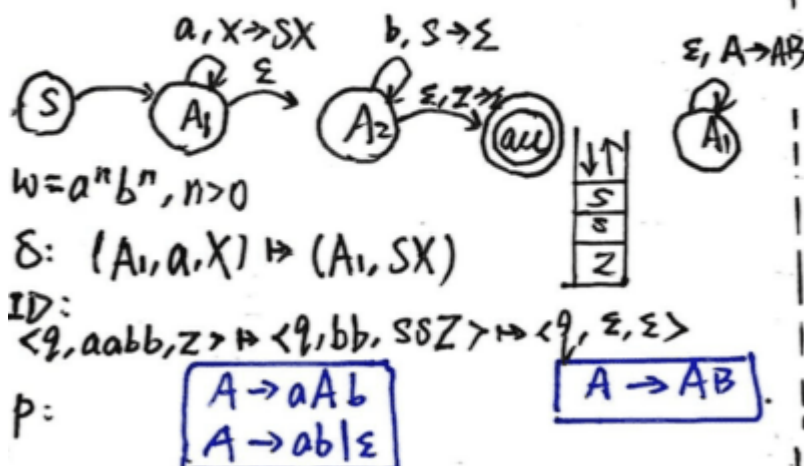 a, X→SX
b, S→Σ
ε, A→AB
S
A₁
ε
A₂
ε, Z→ε
acc
A₁
w=aⁿbⁿ, n>0
S
S
Z
δ: (A₁, a, X) ↦ (A₁, SX)
ID:
<q, aabb, z> ↦ <q, bb, SSZ> ↦ <q, ε, ε>
P:
A → aAb
A → ab|ε
A → AB